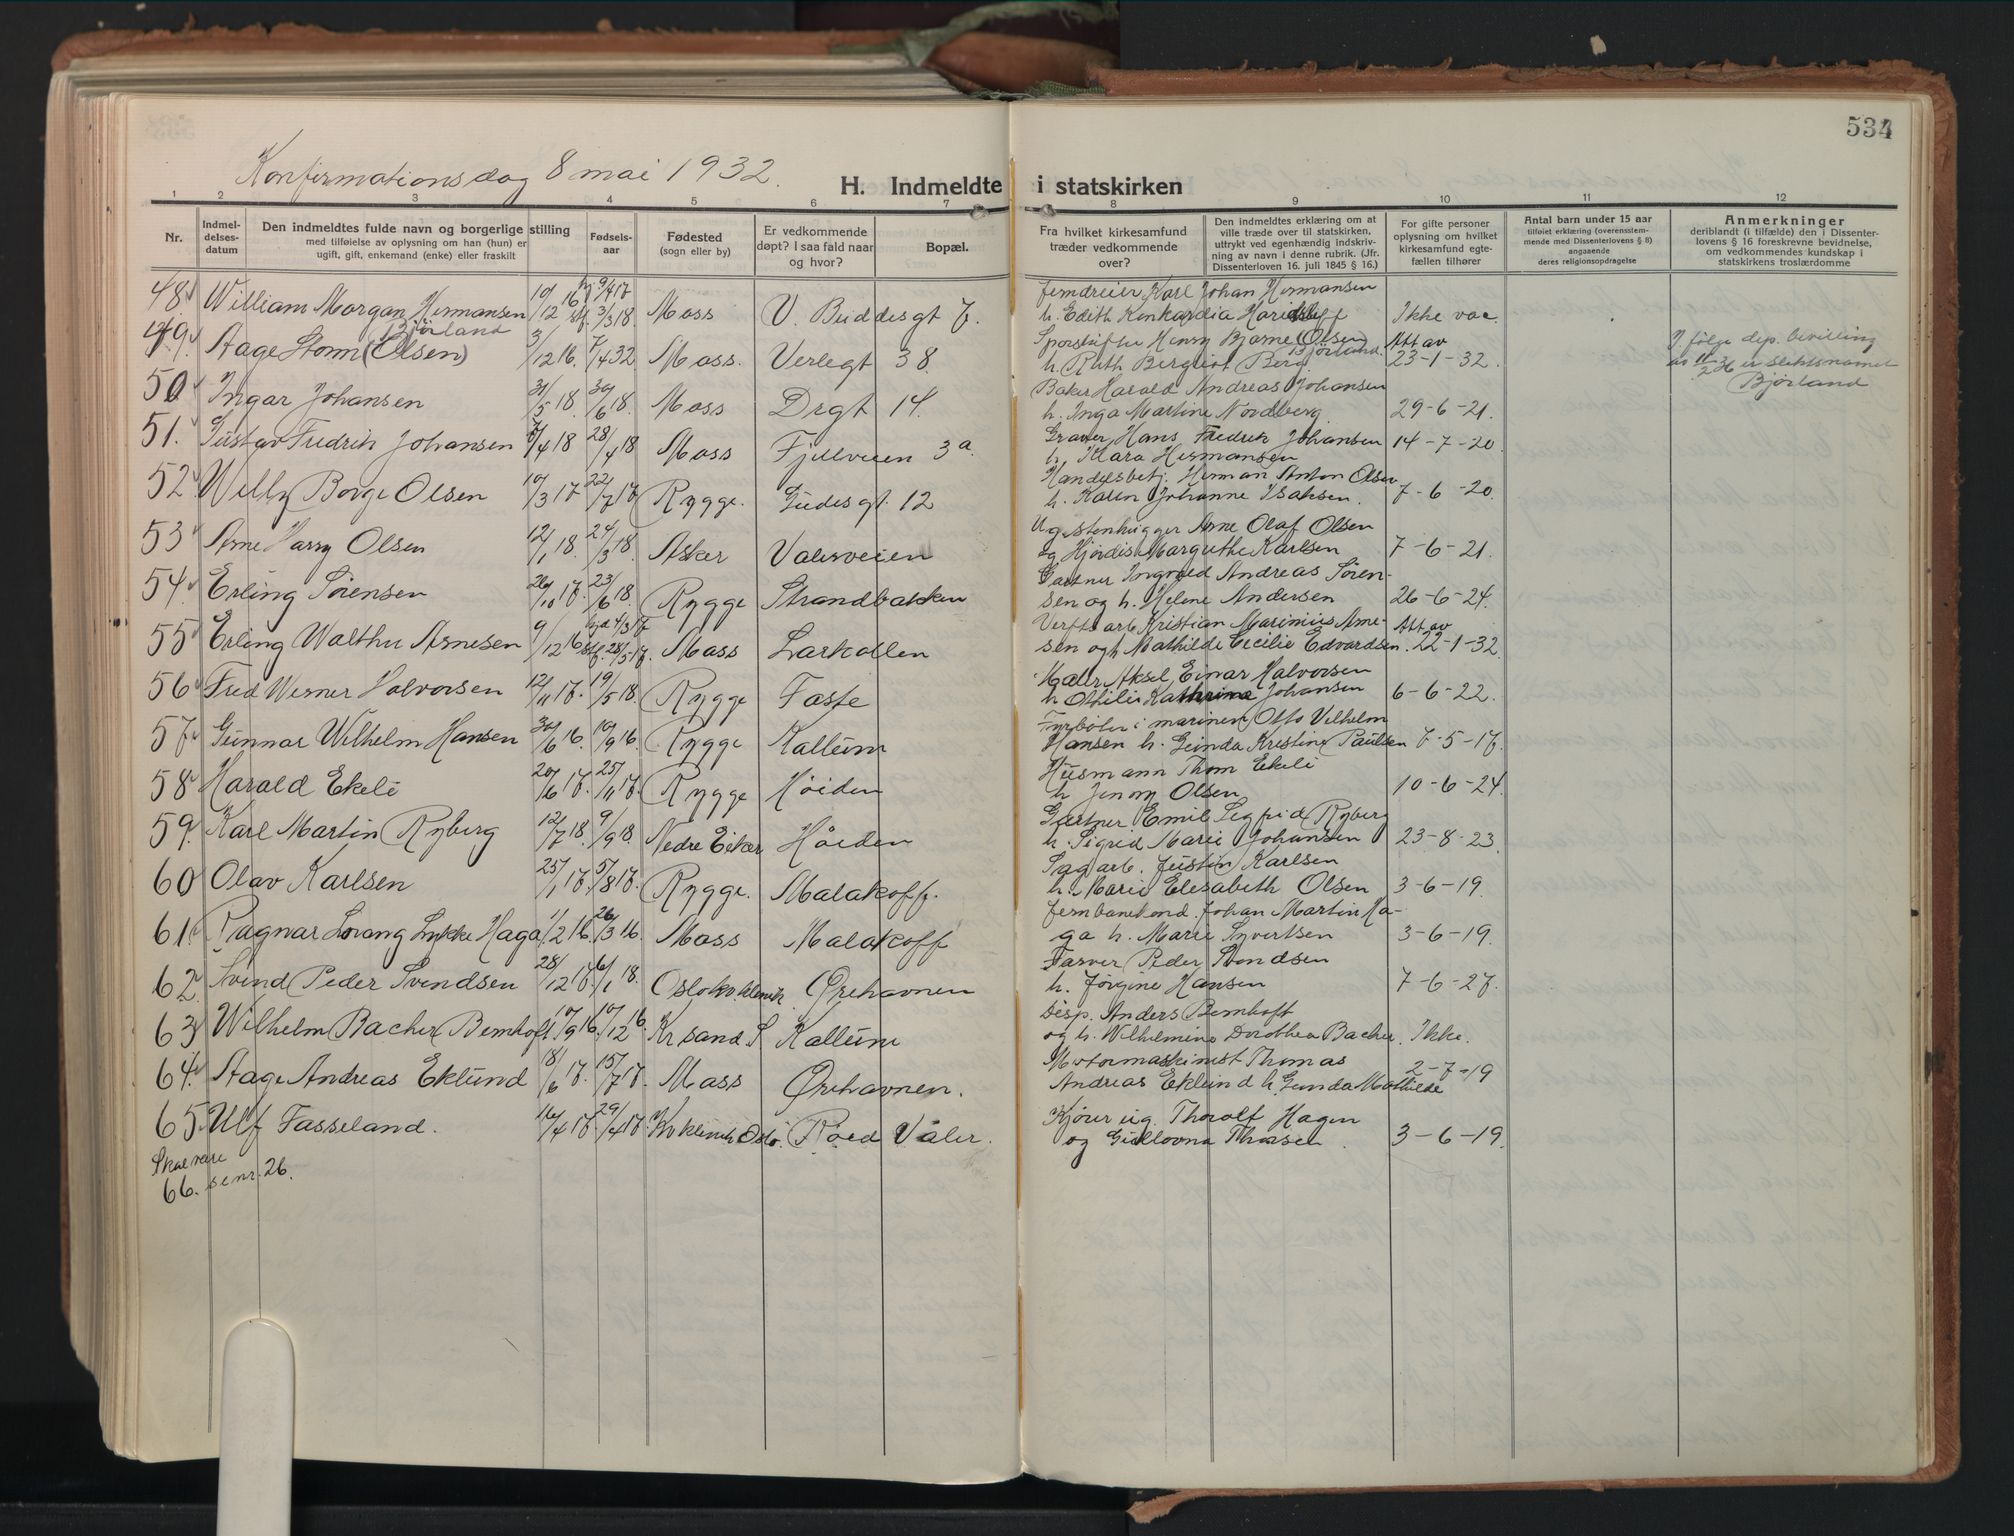 534
Konfirmationsdag 8 mai 1932.
H. Indmeldte i statskirken
1 2 3 4 5 6 7 8 9 10 11 12
Nr.
Indmel-
delses-
datum
Den indmeldtes fulde navn og borgerlige stilling
med tilføielse av oplysning om han (hun) er
ugift, gift, enkemand (enke) eller fraskilt
Fødsels-
aar
Fødested
(sogn eller by)
Er vedkommende
døpt? I saa fald naar
og hvor?
Bopæl.
Fra hvilket kirkesamfund
træder vedkommende
over?
Den indmeldtes erklæring om at
ville træde over til statskirken,
uttrykt ved egenhændig indskriv-
ning av navn i denne rubrik. (Jfr.
Dissenterloven 16. juli 1845 § 16.)
For gifte personer
oplysning om hvilket
kirkesamfund egte-
fællen tilhører
Antal barn under 15 aar
tilføiet erklæring (overensstem-
mende med Dissenterlovens § 8)
angaaende
deres religionsopdragelse
Anmerkninger
deriblandt (i tilfælde) den i Dissenter-
lovens § 16 foreskrevne bevidnelse,
om vedkommendes kundskap i
statskirkens troslærdomme
48 William Morgan Hermansen 10/12 16 hj 9/4 17 stf. 3/3 18. Moss V. Buddesgt 7.
Jerndreier Karl Johan Hermansen
h. Edith Konkordia Ikke vac.
49 Aage Storm (Olsen) Bjørland 3/12 16. 7/4 32 Moss. Verlegt 38.
Sporskifter Henry Bjarne (Olsen) Bjørland.
h. Ruth Bergliot Berg. Att av 23-1-32.
I følge dep. bevilling
av 11/2-36 er slektsnavnet
Bjørland
50 Ingar Johansen 31/5 18. 30/6 18. Moss Drgt 14.
Baker Harald Andreas Johansen
h. Inga Martine Nordberg 29-6-21.
51. Gustav Fredrik Johansen /4 18 28/4 18 Moss Fjellveien 3a.
Graver Hans Fredrik Johansen 14-7-20
h. Klara Hermansen
52 Willy Borge Olsen 10/3 17 22/7 17 Rygge. Gudesgt. 12
Handelsbetj. Herman Anton Olsen
h. Karen Johanne Isaksen. 7-6-20.
53 Arne Harry Olsen 12/1 18. 24/3 18. Asker Valerveien
Ug. stenhugger Arne Olaf Olsen
og Hjørdis Margrethe Karlsen 7-6-21.
54. Erling Sørensen 26/10 17. 23/6 18. Rygge Strandbakken
Gartner Ingvald Andreas Søren-
sen og h. Helene Andersen 26-6-24.
55 Erling Walther Arnesen 9/12 16 hjd 4/3 17 stf. 28/5 17. Moss Larkollen
Verftsarb Kristian Marinius Arne-
sen og h Mathilde Cecilie Edvardsen. Att av 22-1-32.
56 Fred Werner Halvorsen 12/11 17. 19/5 18. Rygge Faste
Maler Aksel Einar Halvorsen
h Othilie Kathrine Johansen 6-6-22.
57 Gunnar Wilhelm Hansen 30/6 16. 10/9 16. Rygge Kallum
Fyrbøter i marinen Otto Vilhelm
Hansen h. Gunda Kristine Paulsen 7-5-17.
58 Harald Ekeli 20/6 17. 25/11 17. Rygge Høiden
Husmann Thom Ekeli
h Jenny Olsen 10-6-24.
59. Karl Martin Ryberg 12/7 18. 9/9 18. Nedre Eiker Høiden
Gartner Emil Sigfrid Ryberg
h. Sigrid Marie Johansen 23-8-23.
60 Olav Karlsen 25/1 17. 5/8 17. Rygge. Malakoff.
Sagarb. Justin Karlsen
h. Marie Elesabeth Olsen 3-6-19
61 Ragnar Lorang Lykke Haga 1/2 16. 26/3 16. Moss Malakoff
Jernbanekond. Johan Martin Ha-
ga h. Marie Syvertsen 3-6-19.
62 Svend Peder Svendsen 28/12 17. 6/1 18. Oslo kv. klinik Ørehavnen
Farver Peder Svendsen
h. Jørgine Hansen 7-6-27.
63 Wilhelm Bacher Bernhoft. 10/9 16. 10/12 16. Kr sand. S. Kallum
Disp. Anders Bernhoft
og h. Wilhelmine Dorothea Bacher. Ikke.
64. Aage Andreas Eklund 18/6 17. 15/7 17. Moss Ørehavnen.
Motormaskinist Thomas
Andreas Eklund h. Gunda Mathilde 2-7-19
65. Ulf Fasseland. 16/4 17. 29/4 17 Kv klinik Oslo. Roed Våler.
Kjører ug. Thoralf Hagen
og Gudlovna Thorsen. 3-6-19.
Skal være
66. se nr. 26.